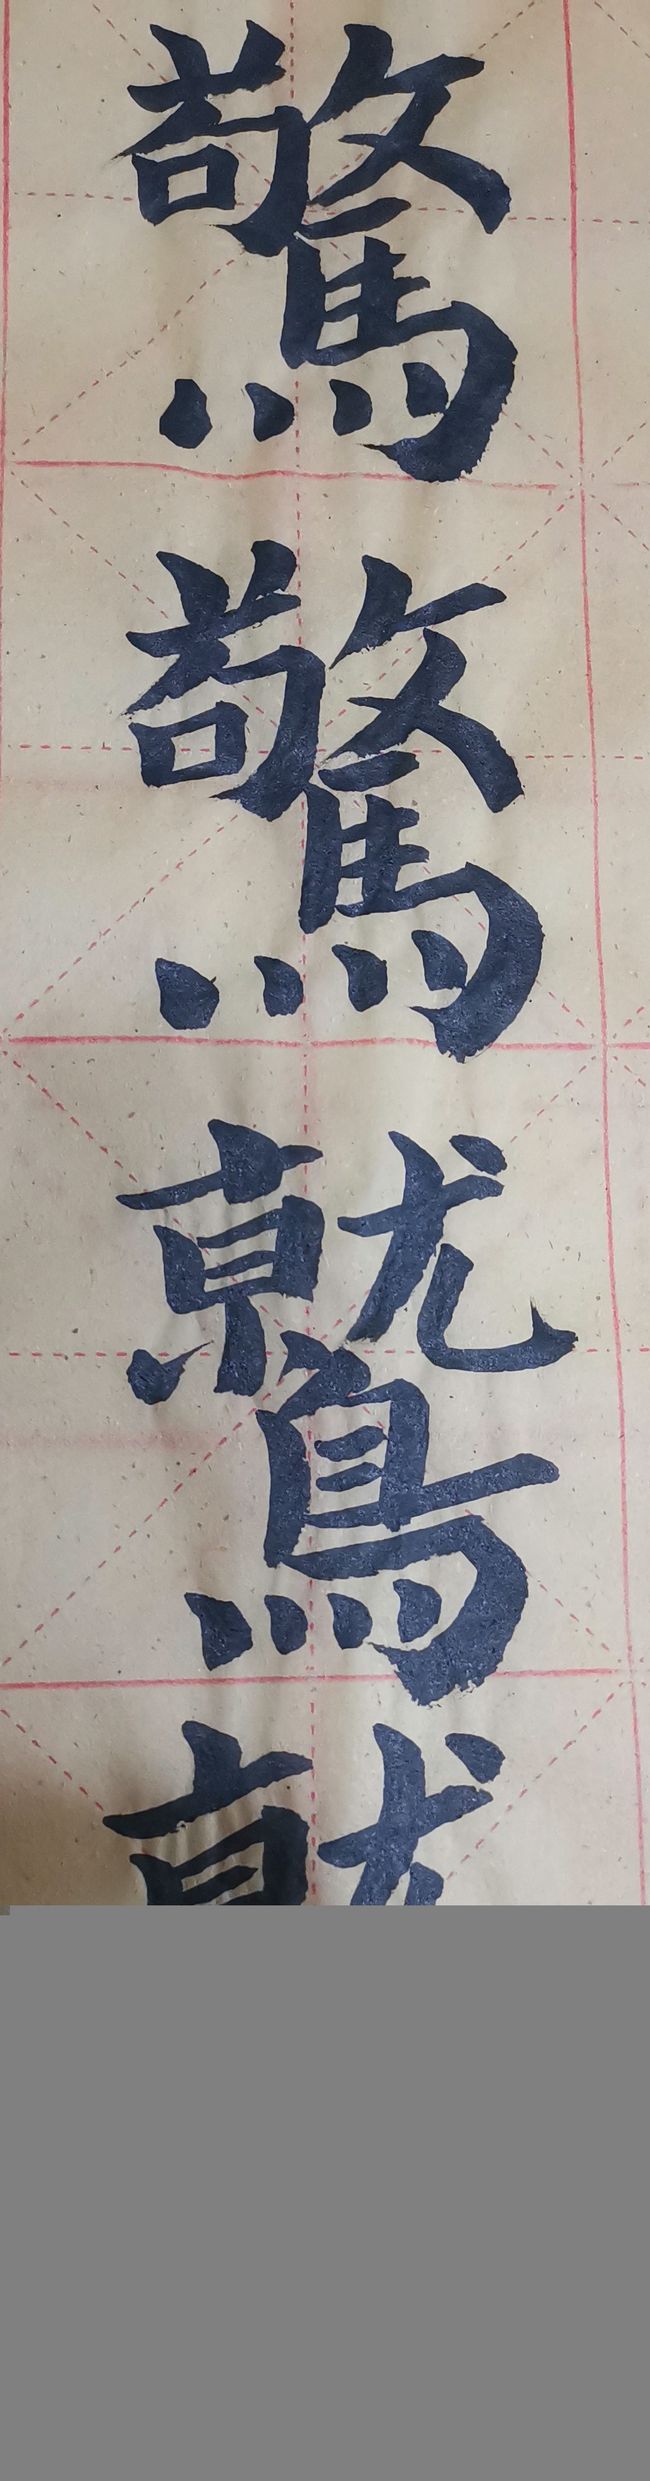 驚驚鷲